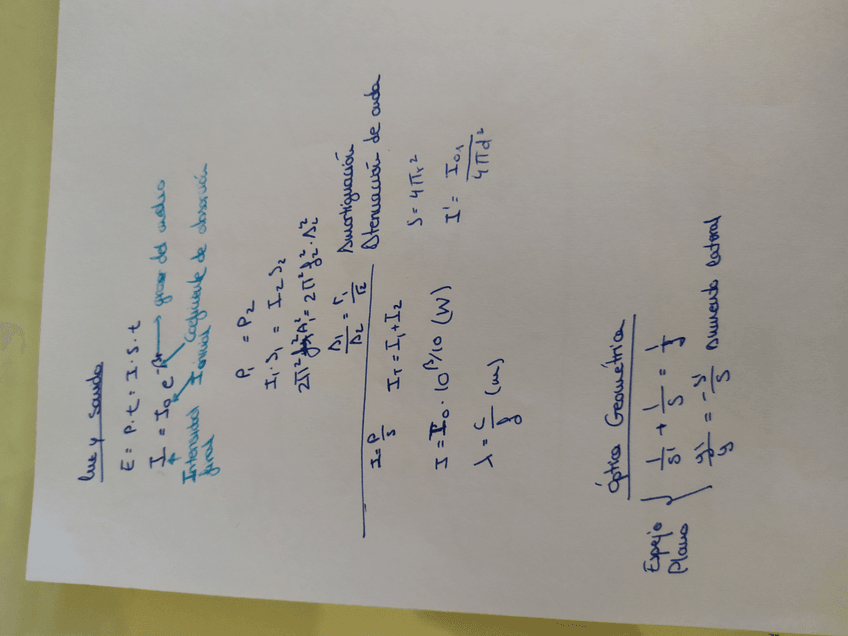 Luz y sonido
E = P · t = I · S · t
I = I₀ e^-βx → grosor del medio
Intensidad final
I inicial
Coeficiente de absorción
P₁ = P₂
I₁ · S₁ = I₂ S₂
2π² f₁² A₁² = 2π² f₂² · A₂²
A₁/A₂ = r₁/r₂
Amortiguación
Atenuación de onda
I = P/S
I_T = I₁ + I₂
S = 4πr²
I = I₀ · 10^β/10 (W)
I' = I₀₁/4πd²
λ = c/f (m)
Óptica Geométrica
Espejo Plano
1/s' + 1/s = 1/f
y'/y = -s'/s Aumento lateral